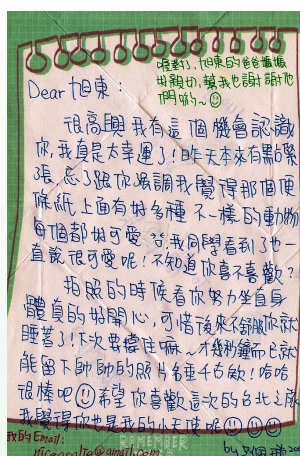 喔對了,旭東的爸爸媽媽
好親切,幫我也謝謝他
們喲~
Dear 旭東:
很高興我有這個機會認識
你,我真是太幸運了!昨天本來有點緊
張,忘了跟你強調我覺得那個便
條紙上面有好多種不一樣的動物
每個都好可愛,我同學看到了也一
直說很可愛呢!不知道你喜不喜歡?
拍照的時候看你努力坐直身
體真的好開心,可惜後來不舒服你就
睡著了!下次要撐住嘛~才幾秒鐘而已就
能留下帥帥的照片名垂千古歐!哈哈
很棒吧 希望你喜歡這次的台北之旅
我覺得你也是我的小天使呢
我的Email:
@gmail.com
REMEMBER
by